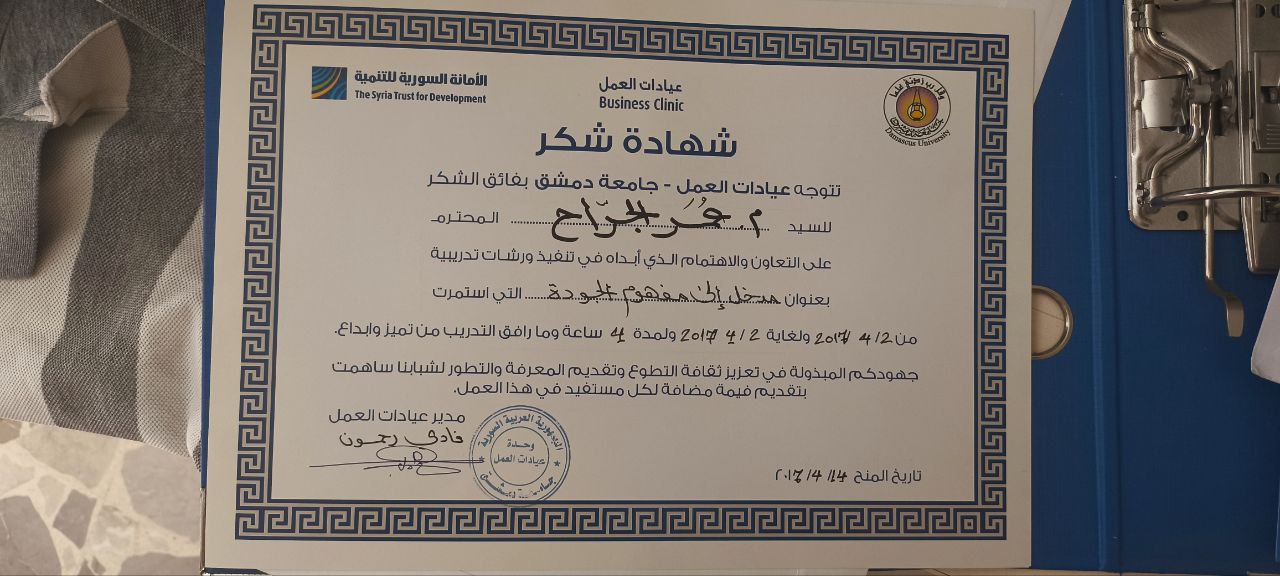 الأمانة السورية للتنمية
The Syria Trust for Development
عيادات العمل
Business Clinic
Damascus University
شهادة شكر
تتوجه عيادات العمل - جامعة دمشق بفائق الشكر
للسيد م. عمر الجراح المحترم
على التعاون والاهتمام الذي أبداه في تنفيذ ورشات تدريبية
بعنوان مدخل إلى مفهوم الجودة التي استمرت
من 2/4/2017 ولغاية 2/4/2017 ولمدة 4 ساعة وما رافق التدريب من تميز وابداع.
جهودكم المبذولة في تعزيز ثقافة التطوع وتقديم المعرفة والتطور لشبابنا ساهمت
بتقديم قيمة مضافة لكل مستفيد في هذا العمل.
مدير عيادات العمل
فادي
الجمهورية العربية السورية
وحدة
عيادات العمل
جامعة دمشق
تاريخ المنح 14/4/2017